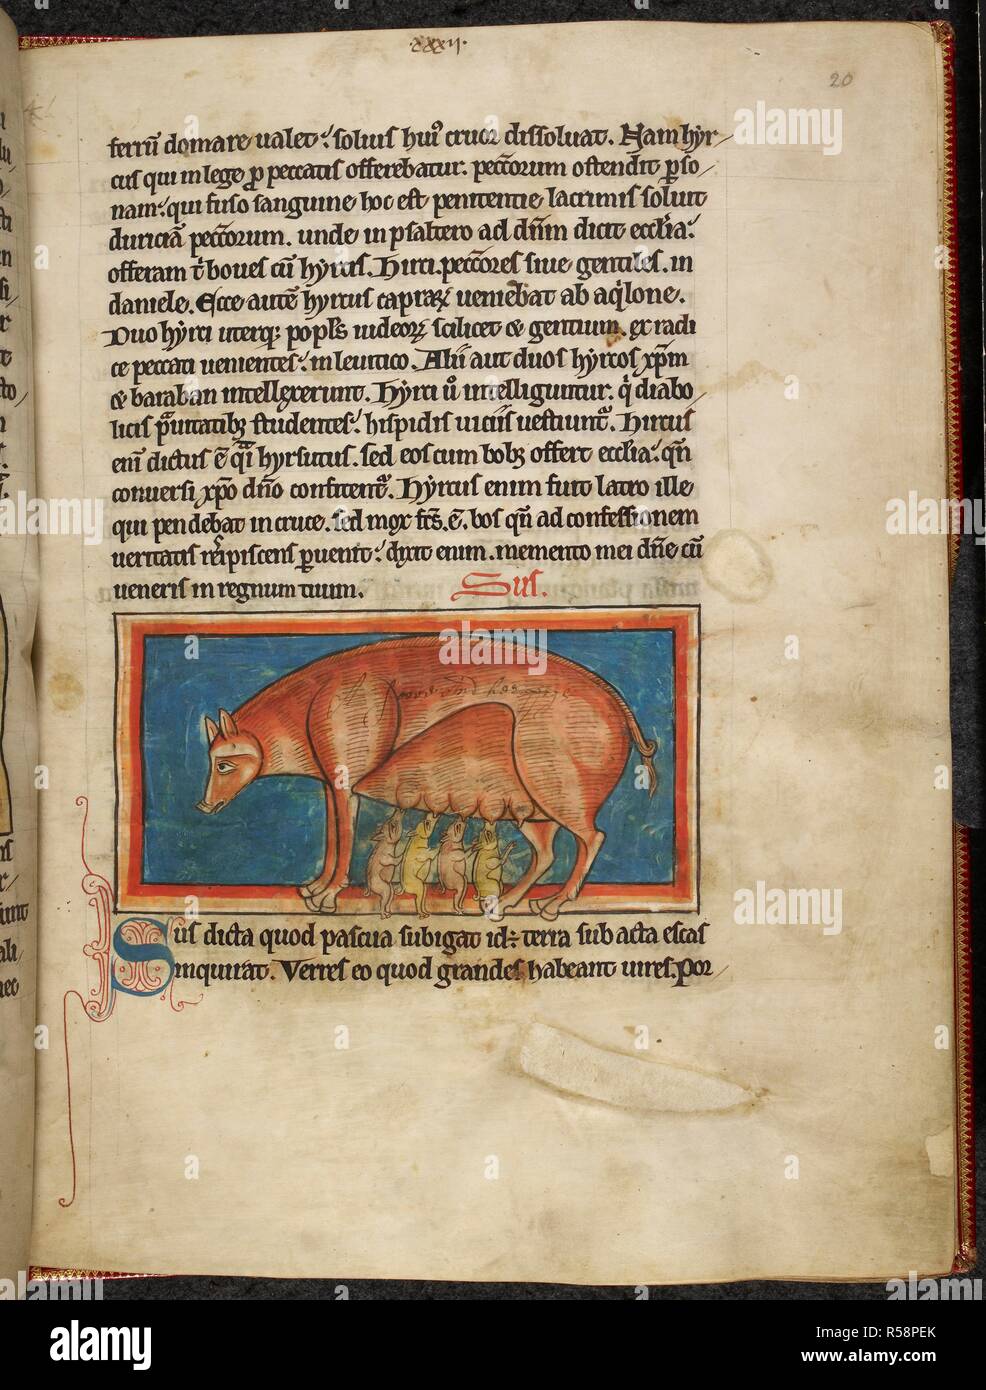 .xxxij.
20
ferrū domare ualet. solius hui' cruor dissoluat. Nam hyr
cus qui in lege p peccatis offerebatur. peccōrum ostendit pso
nam. qui fuso sanguine hoc est penitentie lacrimis soluit
duriciā peccōrum. unde in psaltero ad dn̄m dicit eccl'ia.
offeram t' boues cū hyrcis. Hirci. peccōres siue gentiles. in
daniele. Ecce autē hyrcus capraꝝ ueniebat ab aq'lone.
Duo hyrci uterq; popl's iudeoꝝ scilicet ⁊ gentium. ex radi
ce peccati uenientes. in leuitico. Alii aut duos hyrcos xp̄m
⁊ baraban intellexerunt. Hyrci ů intelliguntur. q' diabo
licis prauitatibꝫ studentes. hispidis uiciis uestiunt'. Hircus
enī dictus ē q̄i hyrsutus. sed eos cum bobꝫ offert eccl'ia. qn̄
conuersi xp̄o dn̄o confitent'. Hyrcus enim fuit latro ille
qui pendebat in cruce. sed mox fc̄s. ē. bos qn̄ ad confessionem
ueritatis resipiscens puenit. dixit enim. memento mei dn̄e cū
ueneris in regnum tuum. Sus.
Sus dicta quod pascua subigat id ÷ terra subacta escas
inquirat. Verres eo quod grandes habeant uires. Por
alamy
Image ID: R58PEK
www.alamy.com